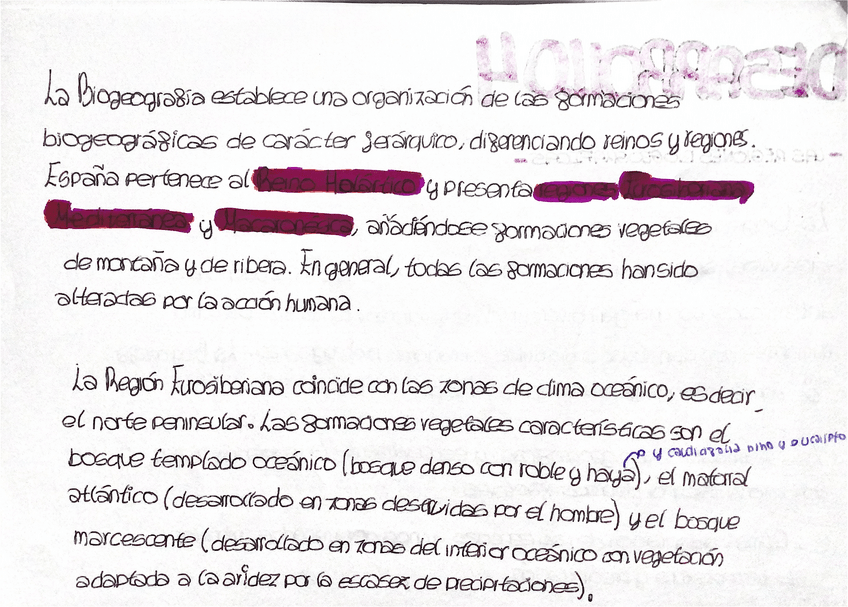 La Biogeografía establece una organización de las formaciones
biogeográficas de carácter jerárquico, diferenciando reinos y regiones.
España pertenece al Reino Holártico y presenta regiones Eurosiberiana,
Mediterránea y Macaronésica, añadiéndose formaciones vegetales
de montaña y de ribera. En general, todas las formaciones han sido
alteradas por la acción humana.
La Región Eurosiberiana coincide con las zonas de clima oceánico, es decir,
el norte peninsular. Las formaciones vegetales características son el
y pino y eucalipto
bosque templado oceánico (bosque denso con roble y haya), el matorral
atlántico (desarrollado en zonas destruidas por el hombre) y el bosque
marcescente (desarrollado en zonas del interior oceánico con vegetación
adaptada a la aridez por la escasez de precipitaciones).